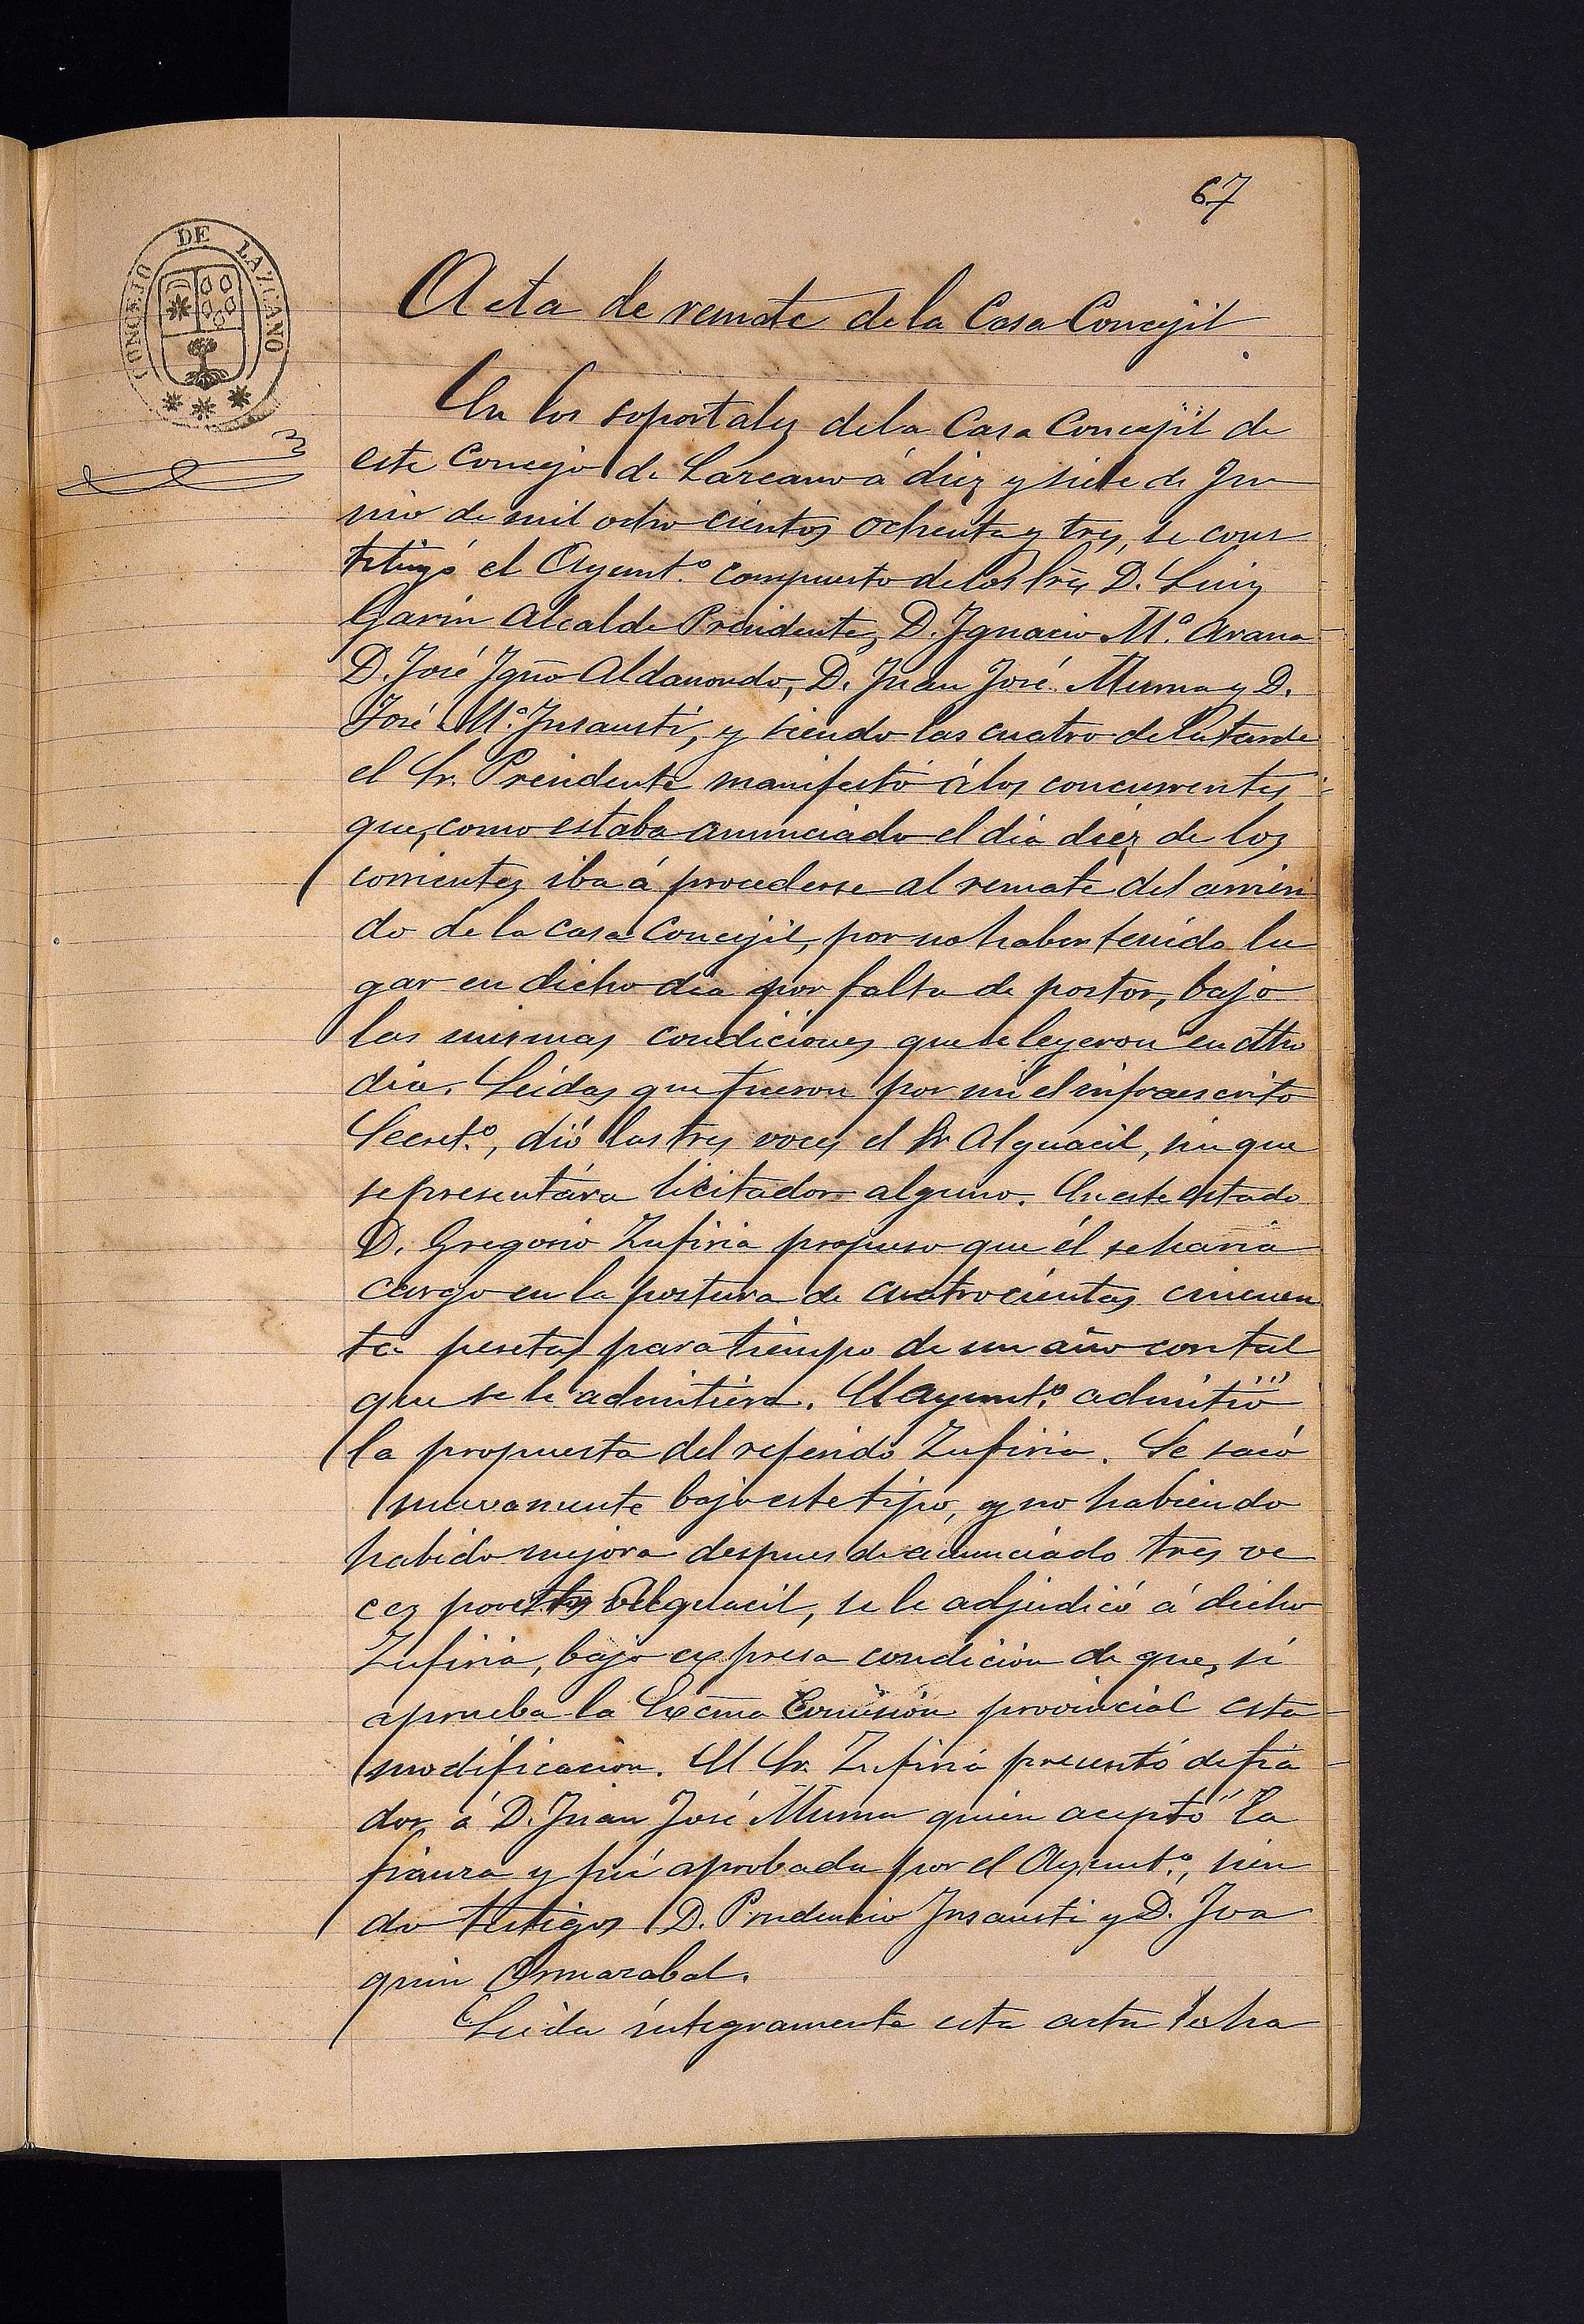 67
CONCEJO DE LAZCANO
Acta de remate de la Casa Concejil
En los soportales de la Casa Concejil de
este Concejo de Lazcano á diez y siete de Ju
nio de mil ocho cientos ochenta y tres, se cons
tituyó el Ayunt.º compuesto de los Sres D. Luis
Garin Alcalde Presidente, D. Ignacio M.ª Arana
D. José Igño Aldanondo, D. Juan José Murua y D.
José M.ª Insausti, y siendo las cuatro de la tarde
el Sr. Presidente manifestó á los concurrentes
que, como estaba anunciado el dia diez de los
corrientes iba á procederse al remate del arrien
do de la casa Concejil, por no haber tenido lu
gar en dicho dia por falta de postor, bajo
las mismas condiciones que se leyeron en dho
dia. Leidas que fueron por mi el infraescrito
Secret.º, dió las tres voces el Sr Alguacil, sin que
se presentára licitador alguno. En este estado
D. Gregorio Zufiria propuso que él se haria
cargo en la postura de cuatrocientas cincuen
ta pesetas para tiempo de un año con tal
que se le admitiera. El Ayunt.º admitió
la propuesta del referido Zufiria. Se sacó
nuevamente bajo este tipo, y no habiendo
habido mejora despues de anunciado tres ve
ces por el Alguacil, se le adjudicó á dicho
Zufiria, bajo expresa condicion de que, si
aprueba la Excma Comisión provincial esta
modificacion. El Sr. Zufiria presentó de fia
dor á D. Juan José Murua quien aceptó la
fianza y fué aprobada por el Ayunt.º, sien
do testigos D. Prudencio Insausti y D. Joa
quin Ormazabal.
Leida íntegramente esta acta se ha